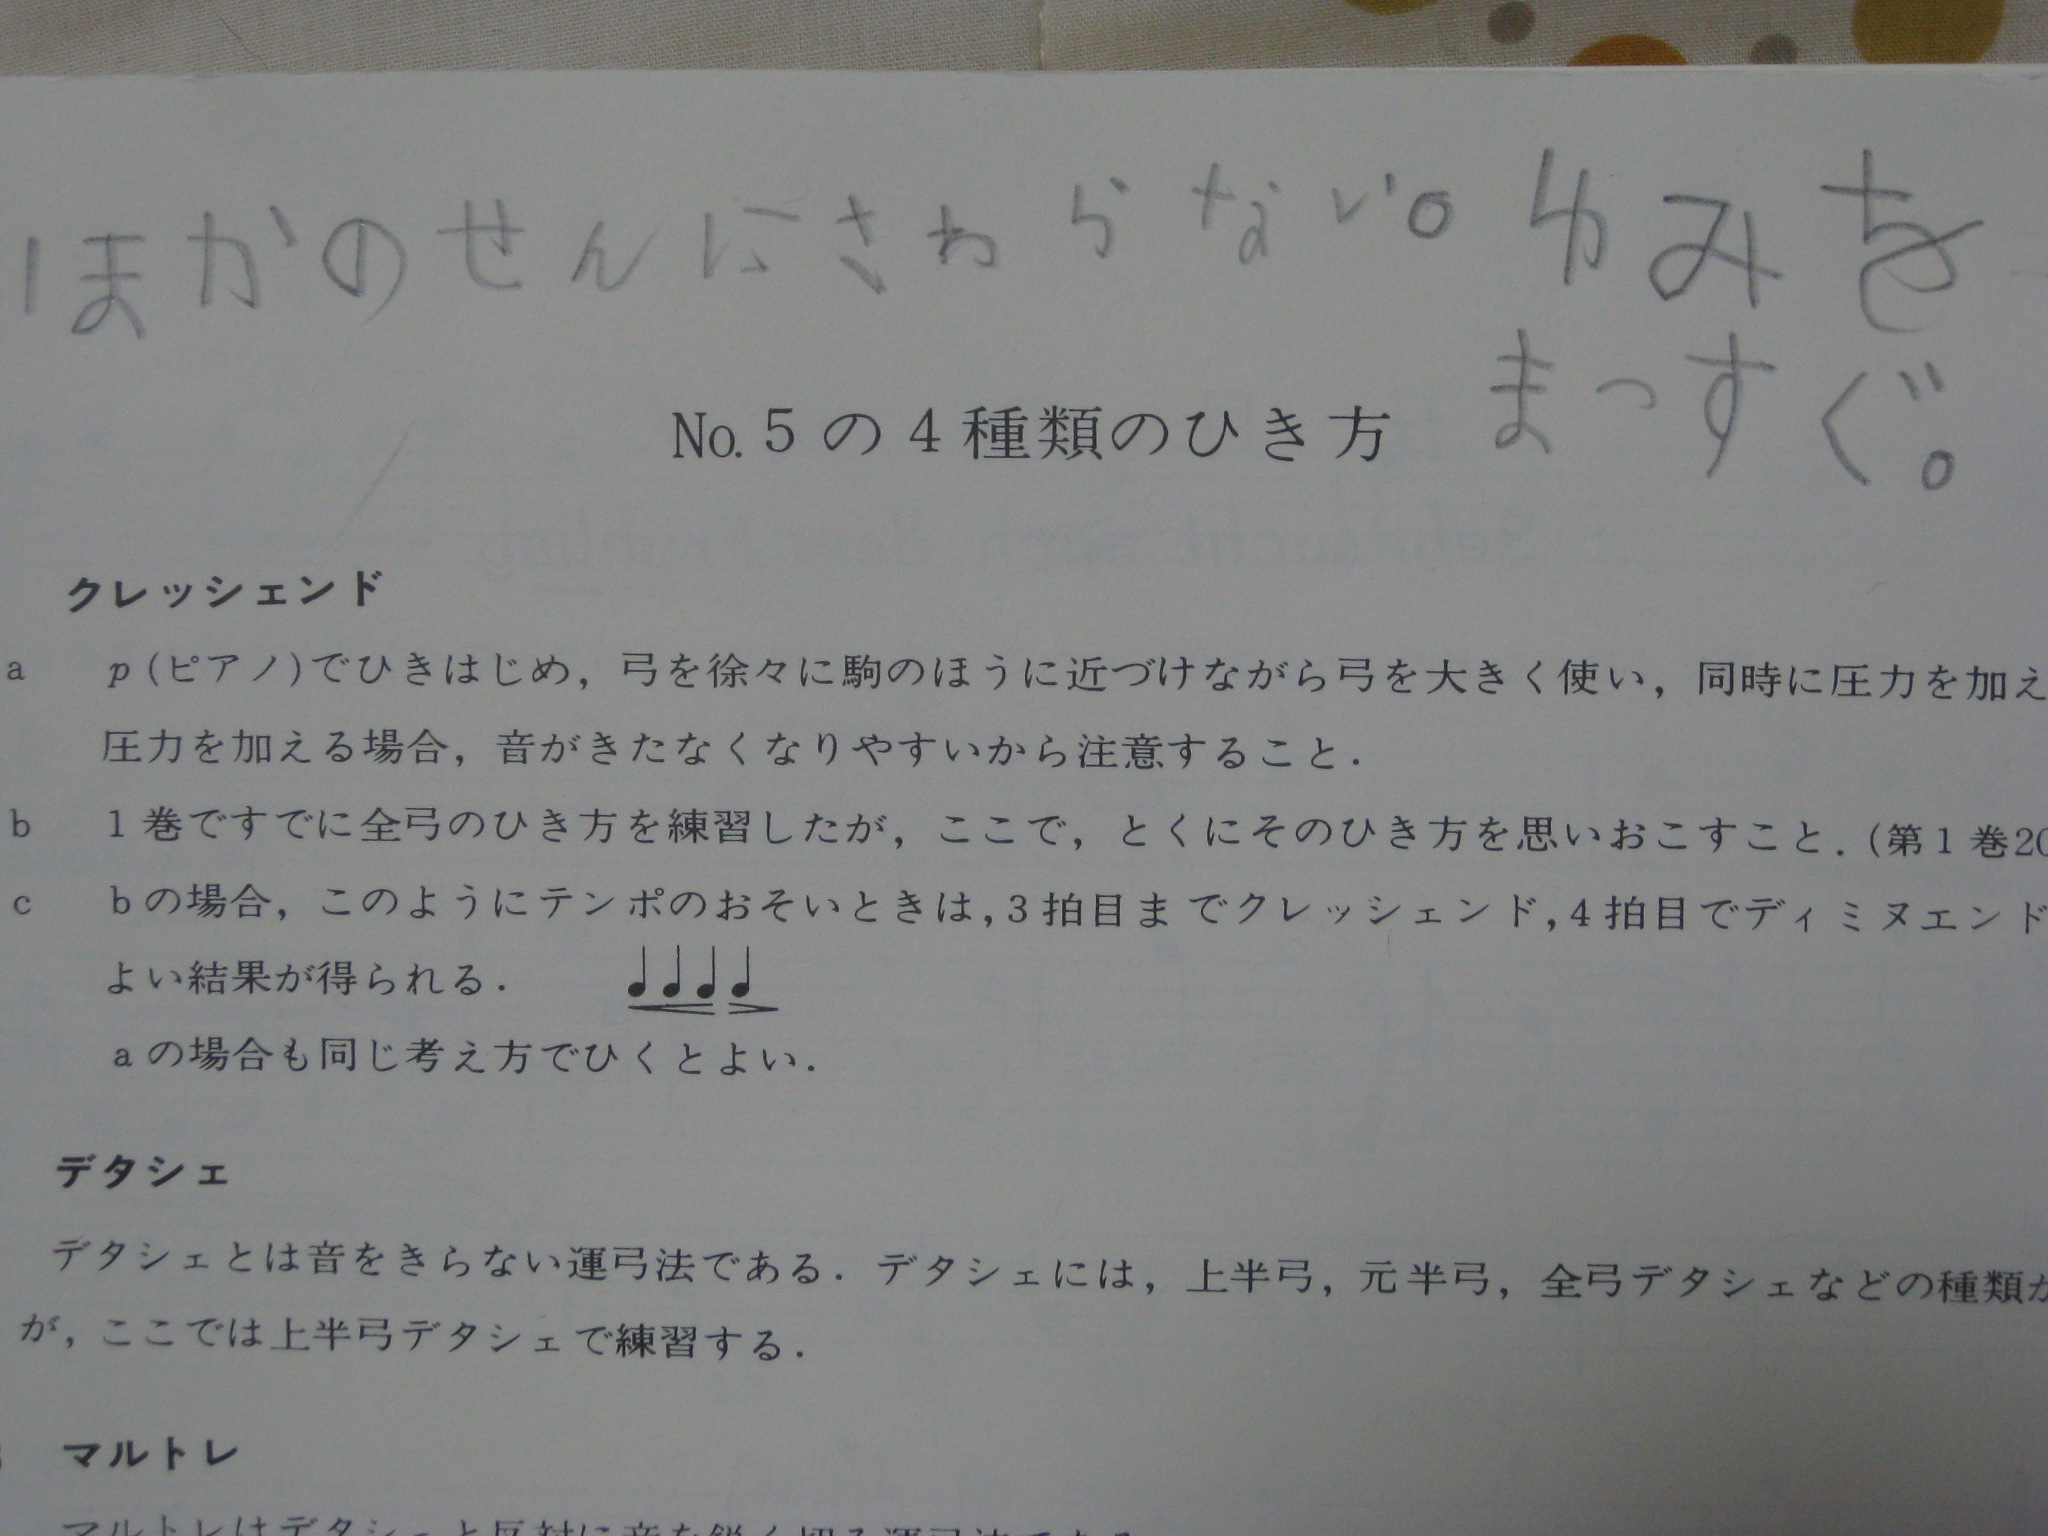 ほかのせんにさわらない。ゆみを
まっすぐ。
No.5の4種類のひき方
クレッシェンド
a p(ピアノ)でひきはじめ,弓を徐々に駒のほうに近づけながら弓を大きく使い,同時に圧力を加え
圧力を加える場合,音がきたなくなりやすいから注意すること.
b 1巻ですでに全弓のひき方を練習したが,ここで,とくにそのひき方を思いおこすこと.(第1巻20
c bの場合,このようにテンポのおそいときは,3拍目までクレッシェンド,4拍目でディミヌエンド
よい結果が得られる.
aの場合も同じ考え方でひくとよい.
デタシェ
デタシェとは音をきらない運弓法である.デタシェには,上半弓,元半弓,全弓デタシェなどの種類が
が,ここでは上半弓デタシェで練習する.
マルトレ
マルトレはデタシェと反対に音を鋭く切る運弓法である